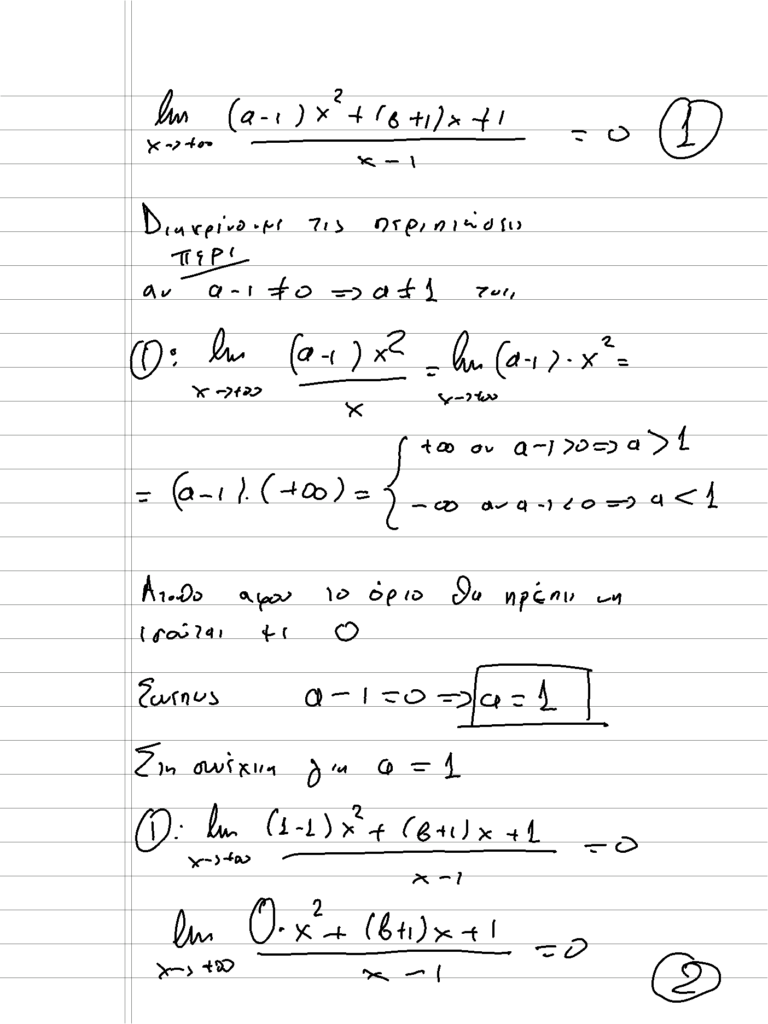 lim (a-1)x² + (β+1)x + 1 / x-1 = 0 ①
x→+∞
Διακρίνουμε τις περιπτώσεις
περι
αν a-1 ≠ 0 ⇒ a ≠ 1 τότε
①: lim (a-1)x² / x = lim (a-1)·x² =
x→+∞ x→+∞
= (a-1)·(+∞) = { +∞ αν a-1>0 ⇒ a > 1
-∞ αν a-1<0 ⇒ a < 1
Άτοπο αφού το όριο θα πρέπει να
ισούται με 0
Συνεπώς a-1=0 ⇒ a=1
Στη συνέχεια για a=1
①: lim (1-1)x² + (β+1)x + 1 / x-1 = 0
x→+∞
lim 0·x² + (β+1)x + 1 / x-1 = 0
x→+∞ ②